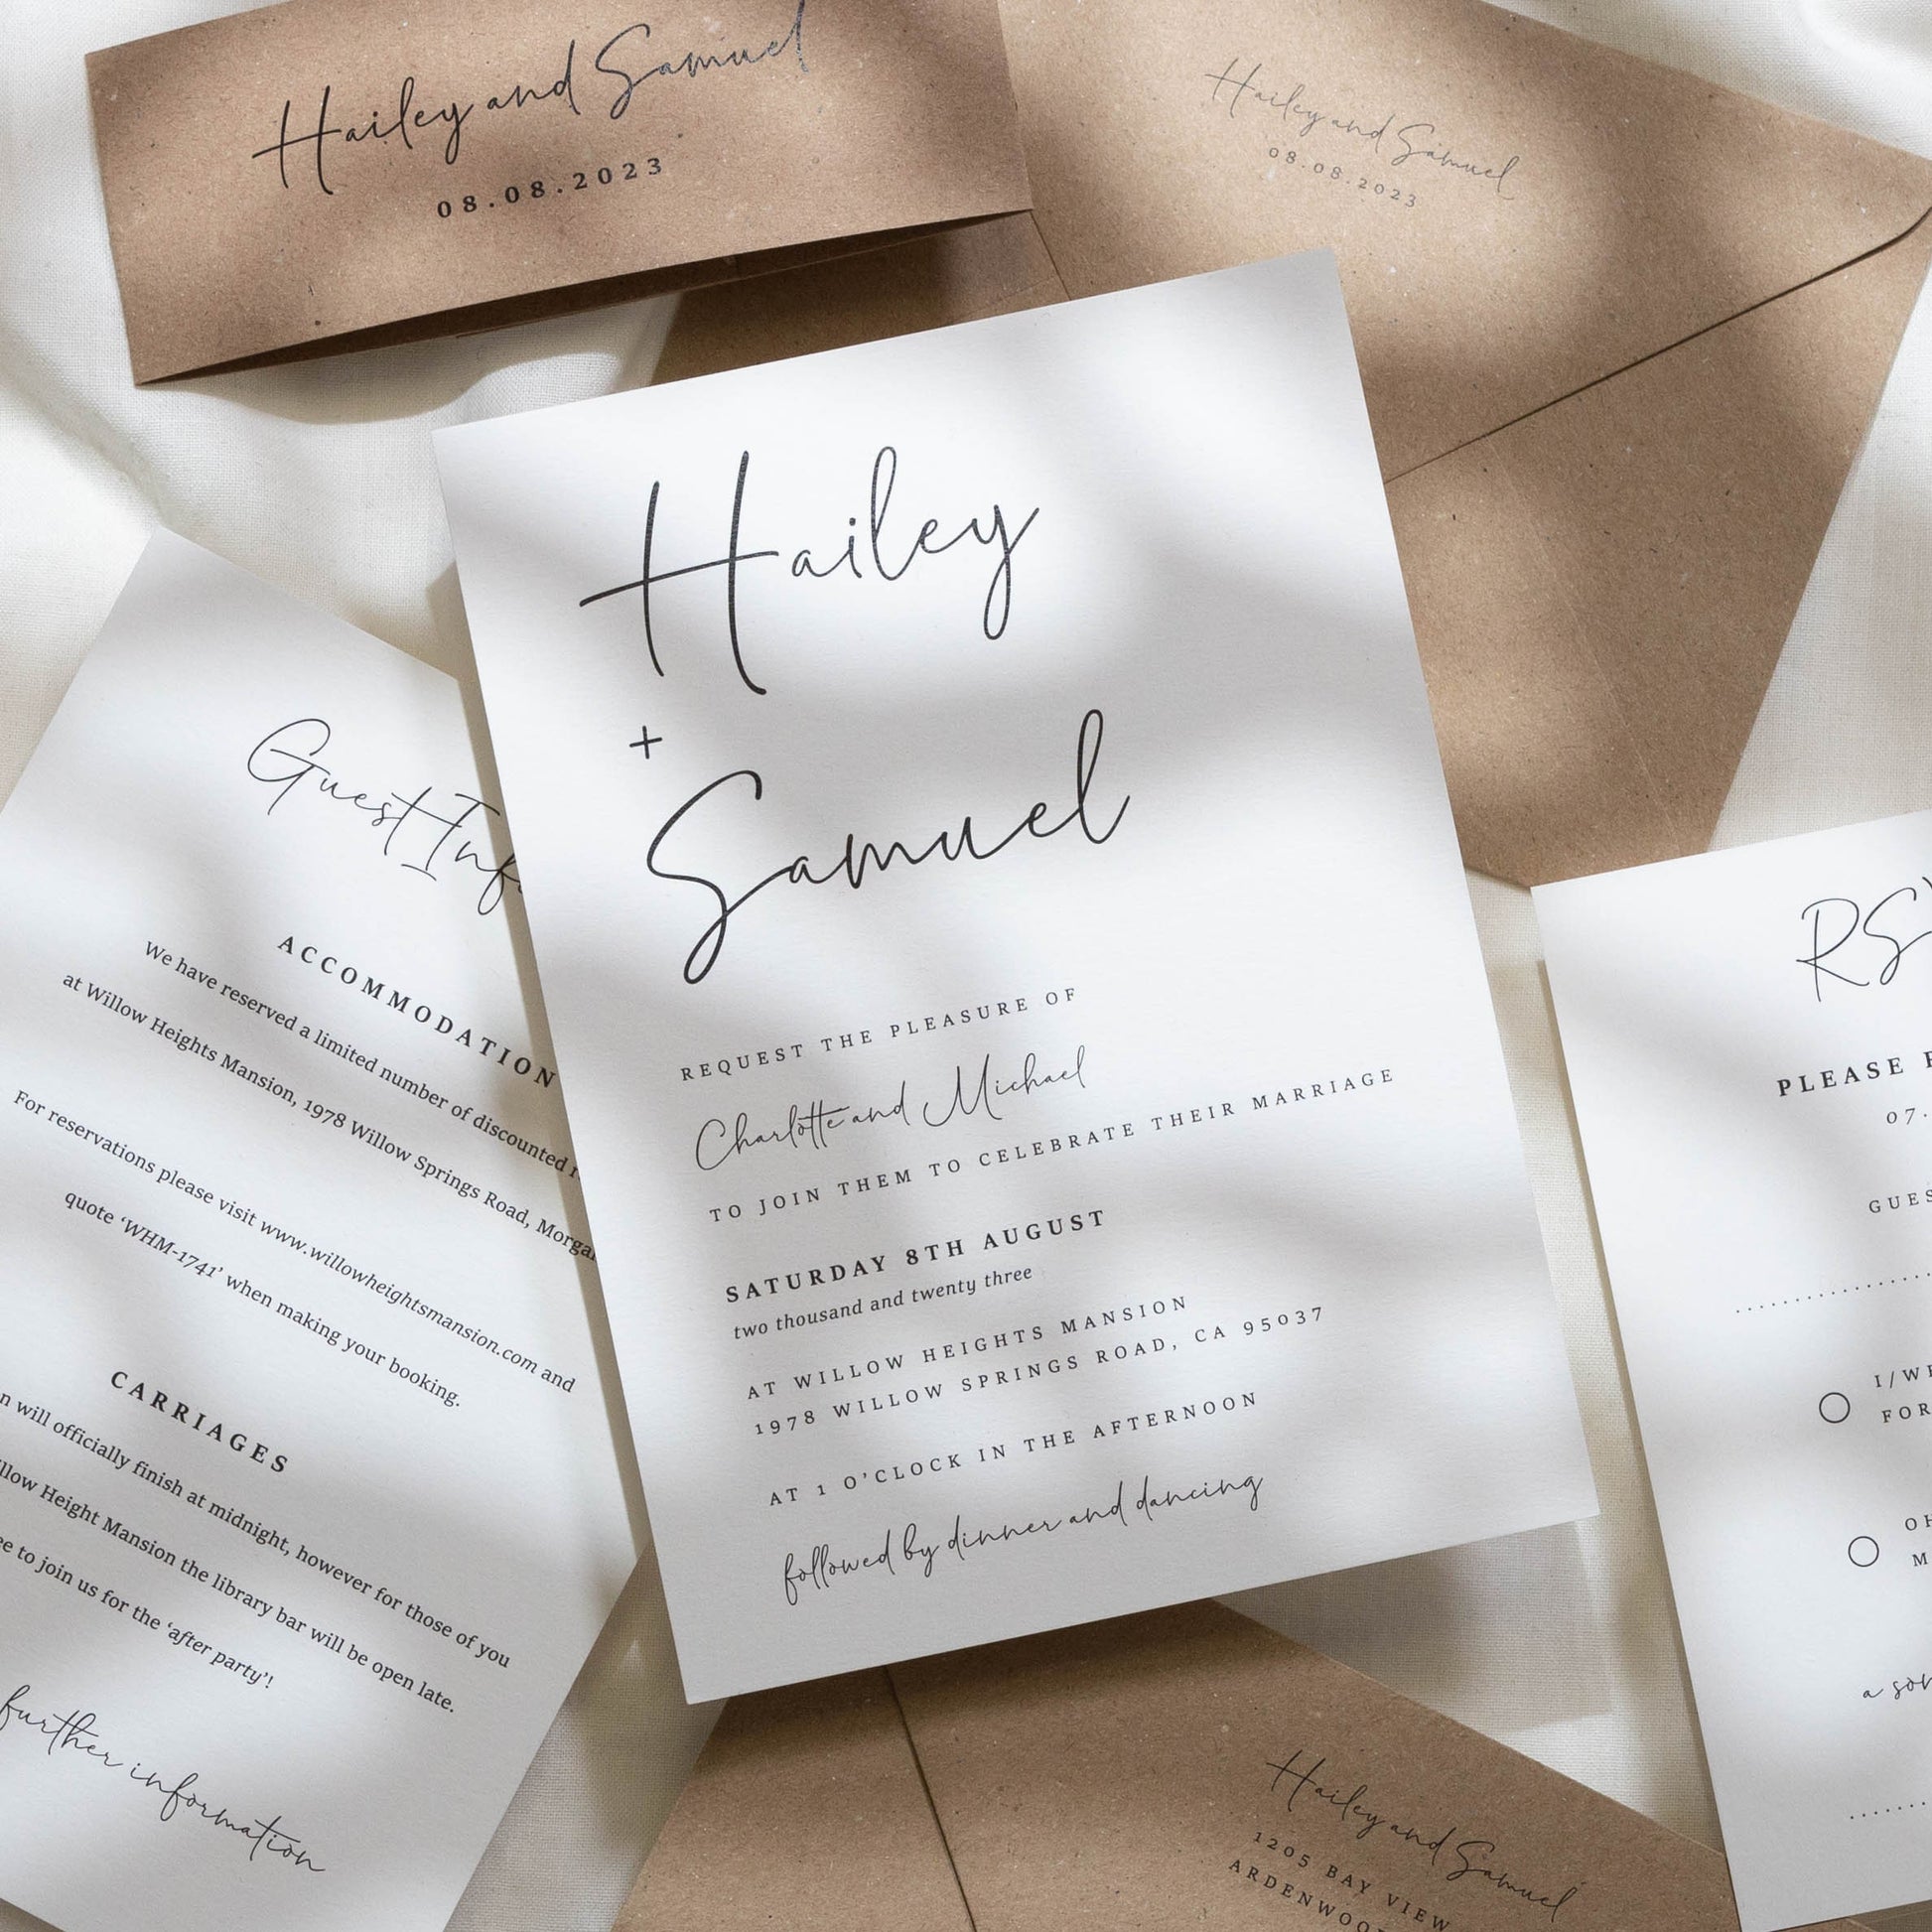 Hailey and Samuel
08.08.2023
Hailey and Samuel
08.08.2023
Hailey
+
Samuel
REQUEST THE PLEASURE OF
Charlotte and Michael
TO JOIN THEM TO CELEBRATE THEIR MARRIAGE
SATURDAY 8TH AUGUST
two thousand and twenty three
AT WILLOW HEIGHTS MANSION
1978 WILLOW SPRINGS ROAD, CA 95037
AT 1 O'CLOCK IN THE AFTERNOON
followed by dinner and dancing
Guest
ACCOMMODATION
We have reserved a limited number of discounted
at Willow Heights Mansion, 1978 Willow Springs Road,
For reservations please visit www.willowheightsmansion.com and
quote ‘WHM-1741’ when making your booking.
CARRIAGES
will officially finish at midnight, however for those of you
Height Mansion the library bar will be open late.
to join us for the ‘after party’!
further information
PLEASE
07.
I/WE
FOR
a
Hailey and Samuel
1205 BAY VIEW